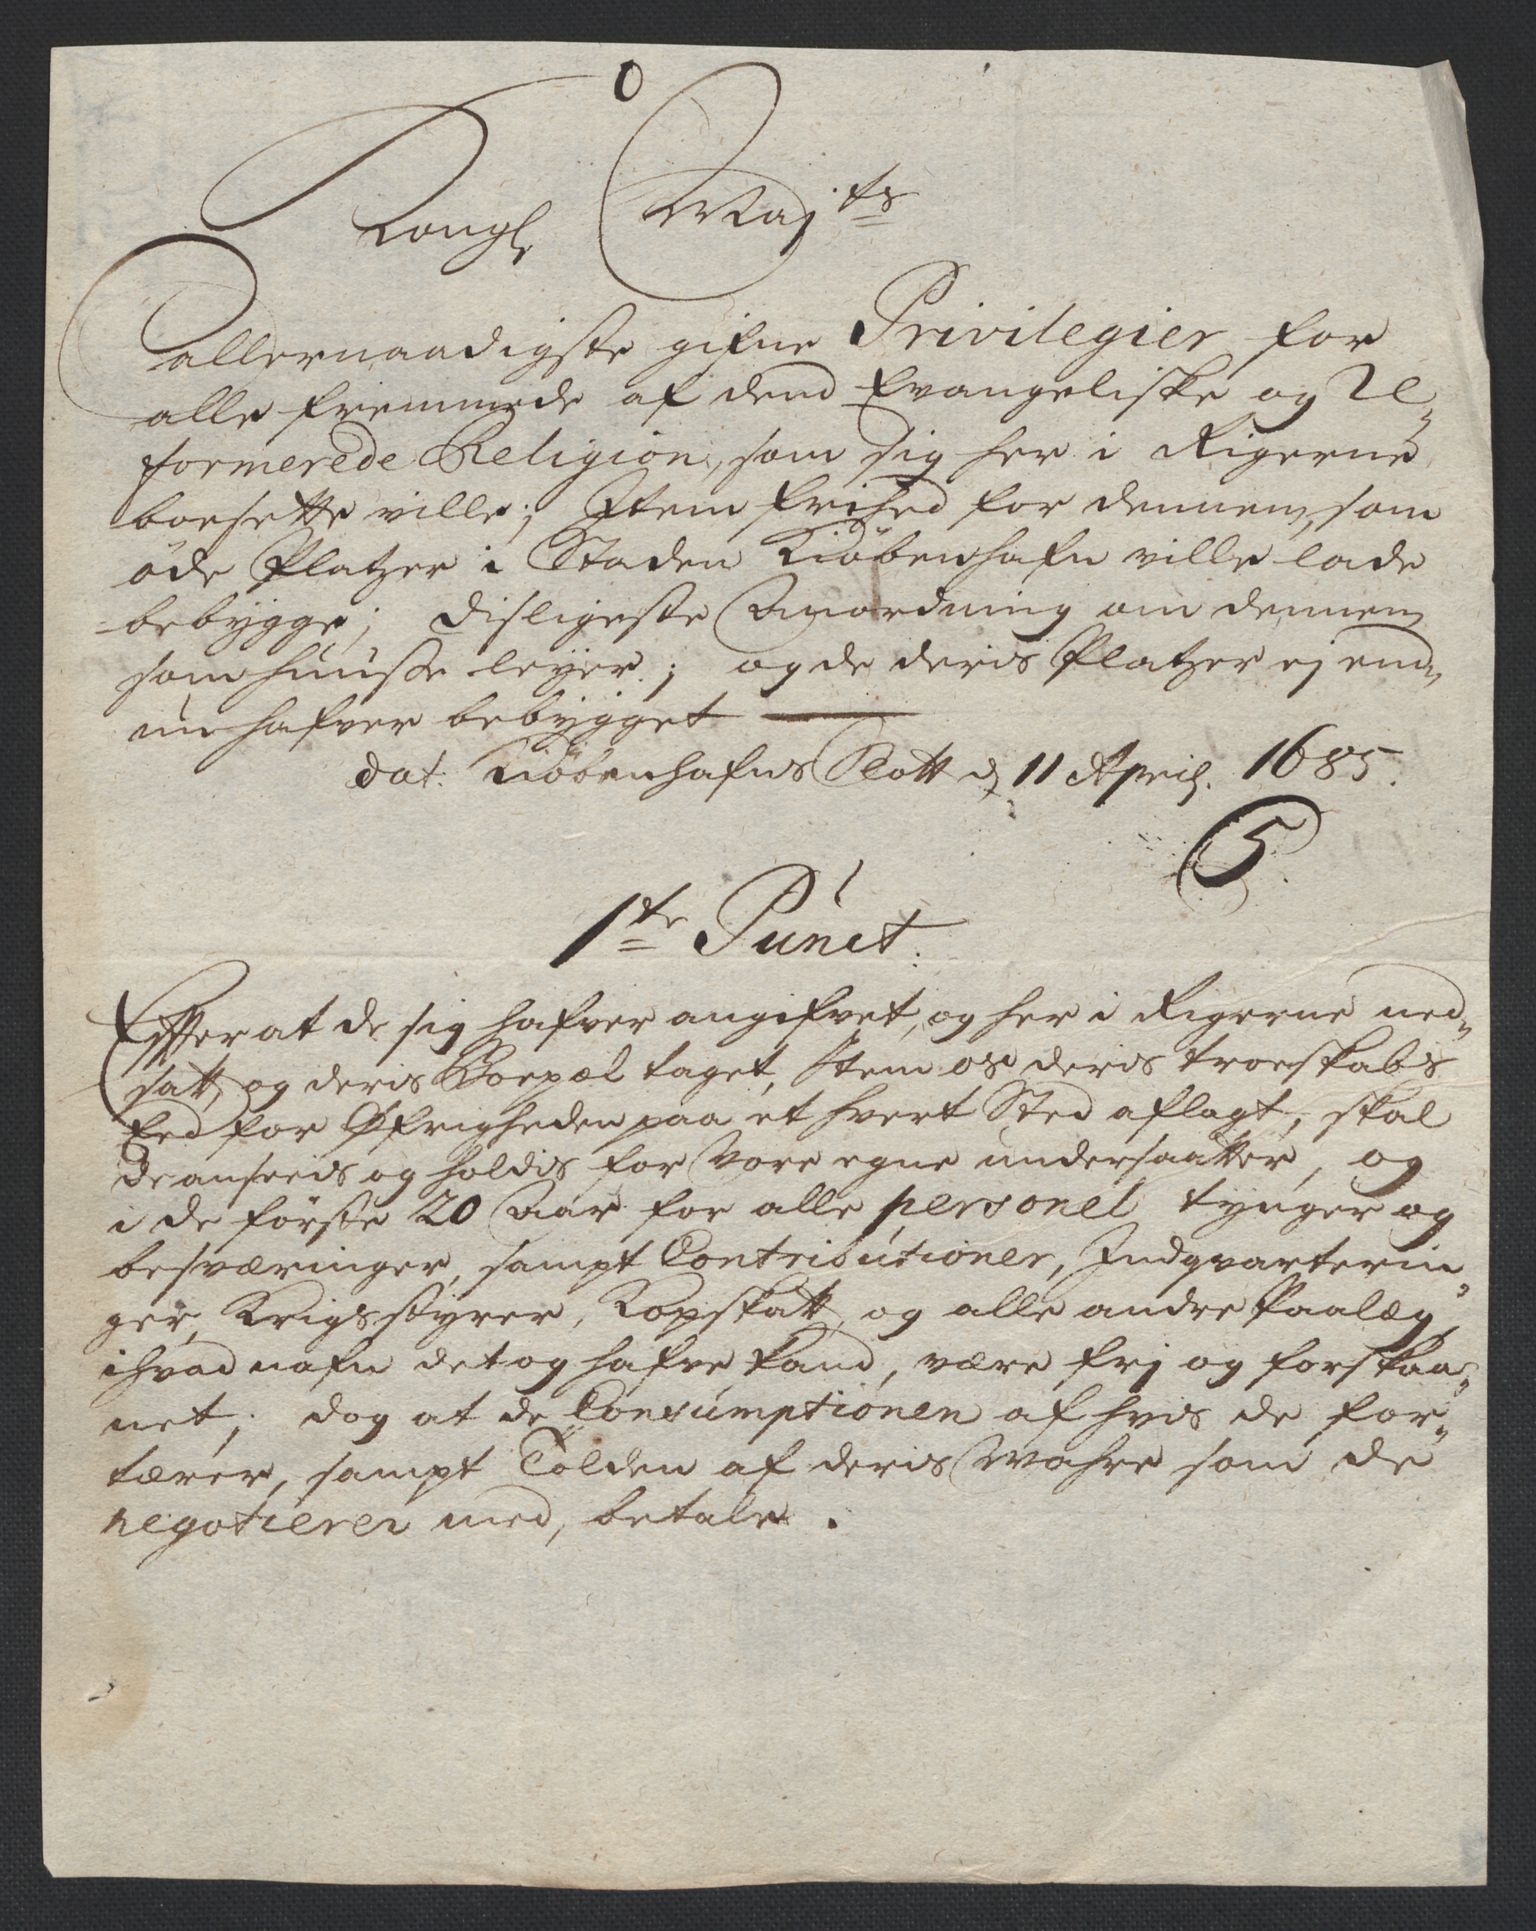 Kongl Maj.ts
allernaadigste gifne Privilegier for
alle fremmede af dend Evangeliske og Re-
formerede Religion, som sig her i Rigerne
boesette ville; Item frihed for dennem, som
öde Platzer i Staden Kiöbenhafn ville lade
bebygge; disligeste Anordning om dennem
som huuse leyer; og de deris Platzer ej end-
nu hafver bebygget
dat. Kiöbenhafns Slott d 11 April. 1685.
5
1te Punct.
Effter at de sig hafver angifvet, og her i Rigerne ned-
satt, og deris Boepæl taget, Item os deris troeskabs
Eed for Øfrigheden paa et hvert Sted aflagt, skal
de anseeis og holdis for Vore egne undersaatter, og
i de förste 20 Aar for alle personel tynger og
besværinger, sampt Contributioner, Indqvarterin-
ger, Krigsstyrer, Kopskatt, og alle andre Paalæg,
ihvad nafn det og hafve kand, være frj og forskaa-
net; dog at de Consumptionen af hvis de for-
tærer, sampt Tolden af deris Wahre som de
negotierer med, betale.